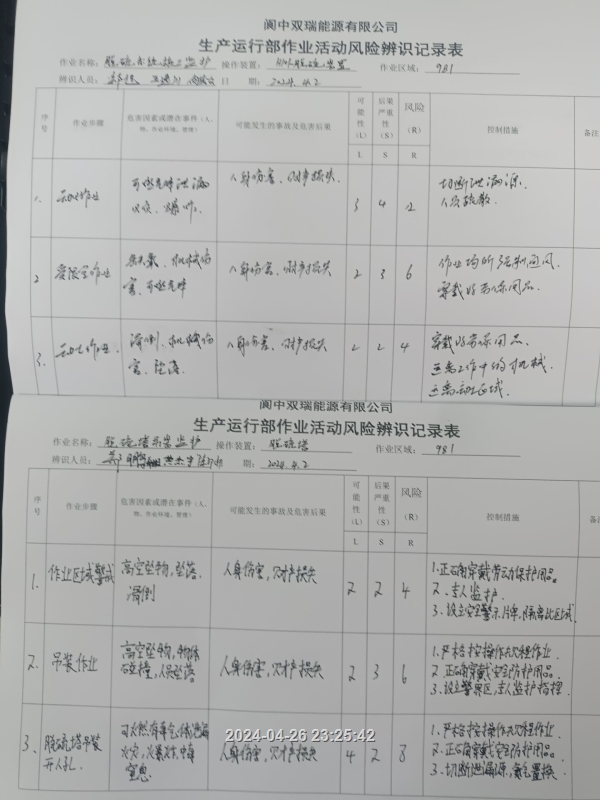 阆中双瑞能源有限公司
生产运行部作业活动风险辨识记录表
作业名称： 脱硫系统施工监护 操作装置： 脱硫装置 作业区域： 981
辨识人员： 日 期： 2024.4.2
序号 作业步骤 危害因素或潜在事件（人、物、作业环境、管理） 可能发生的事故及危害后果 可能性（L） 后果严重性（S） 风险（R） 控制措施 备注
L S R
1. 动火作业 可燃气体泄漏 火灾、爆炸. 人身伤害、财产损失. 3 4 12 切断泄漏源. 人员疏散.
2 受限空间作业 机械伤害、可燃气体 人身伤害、财产损失 2 3 6 作业场所强制通风. 穿戴好劳保用品.
3. 动土作业. 滑倒、机械伤害、坠落. 人身伤害、财产损失 2 2 4 穿戴好劳保用品. 远离工作中的机械. 远离动土区域.
阆中双瑞能源有限公司
生产运行部作业活动风险辨识记录表
作业名称： 脱硫塔吊装监护 操作装置： 脱硫塔 作业区域： 981
辨识人员： 期： 2024.4.2
序号 作业步骤 危害因素或潜在事件（人、物、作业环境、管理） 可能发生的事故及危害后果 可能性（L） 后果严重性（S） 风险（R） 控制措施 备注
L S R
1. 作业区域警戒 高空坠物，坠落. 滑倒 人身伤害，财产损失 2 2 4 1.正确穿戴劳动保护用品. 2.专人监护. 3.设立安全警示牌，隔离此区域.
2. 吊装作业 高空坠物，物体碰撞，人员坠落 人身伤害，财产损失 2 3 6 1.严格按操作规程作业. 2.正确穿戴安全防护用品. 3.设立警戒区，专人监护指挥.
3. 脱硫塔吊装开人孔. 可燃有毒气体泄漏 火灾，爆炸.中毒窒息. 人身伤害，财产损失 4 2 8 1.严格按操作规程作业. 2.正确穿戴安全防护用品. 3.切断泄漏源，氮气置换.
2024-04-26 23:25:42